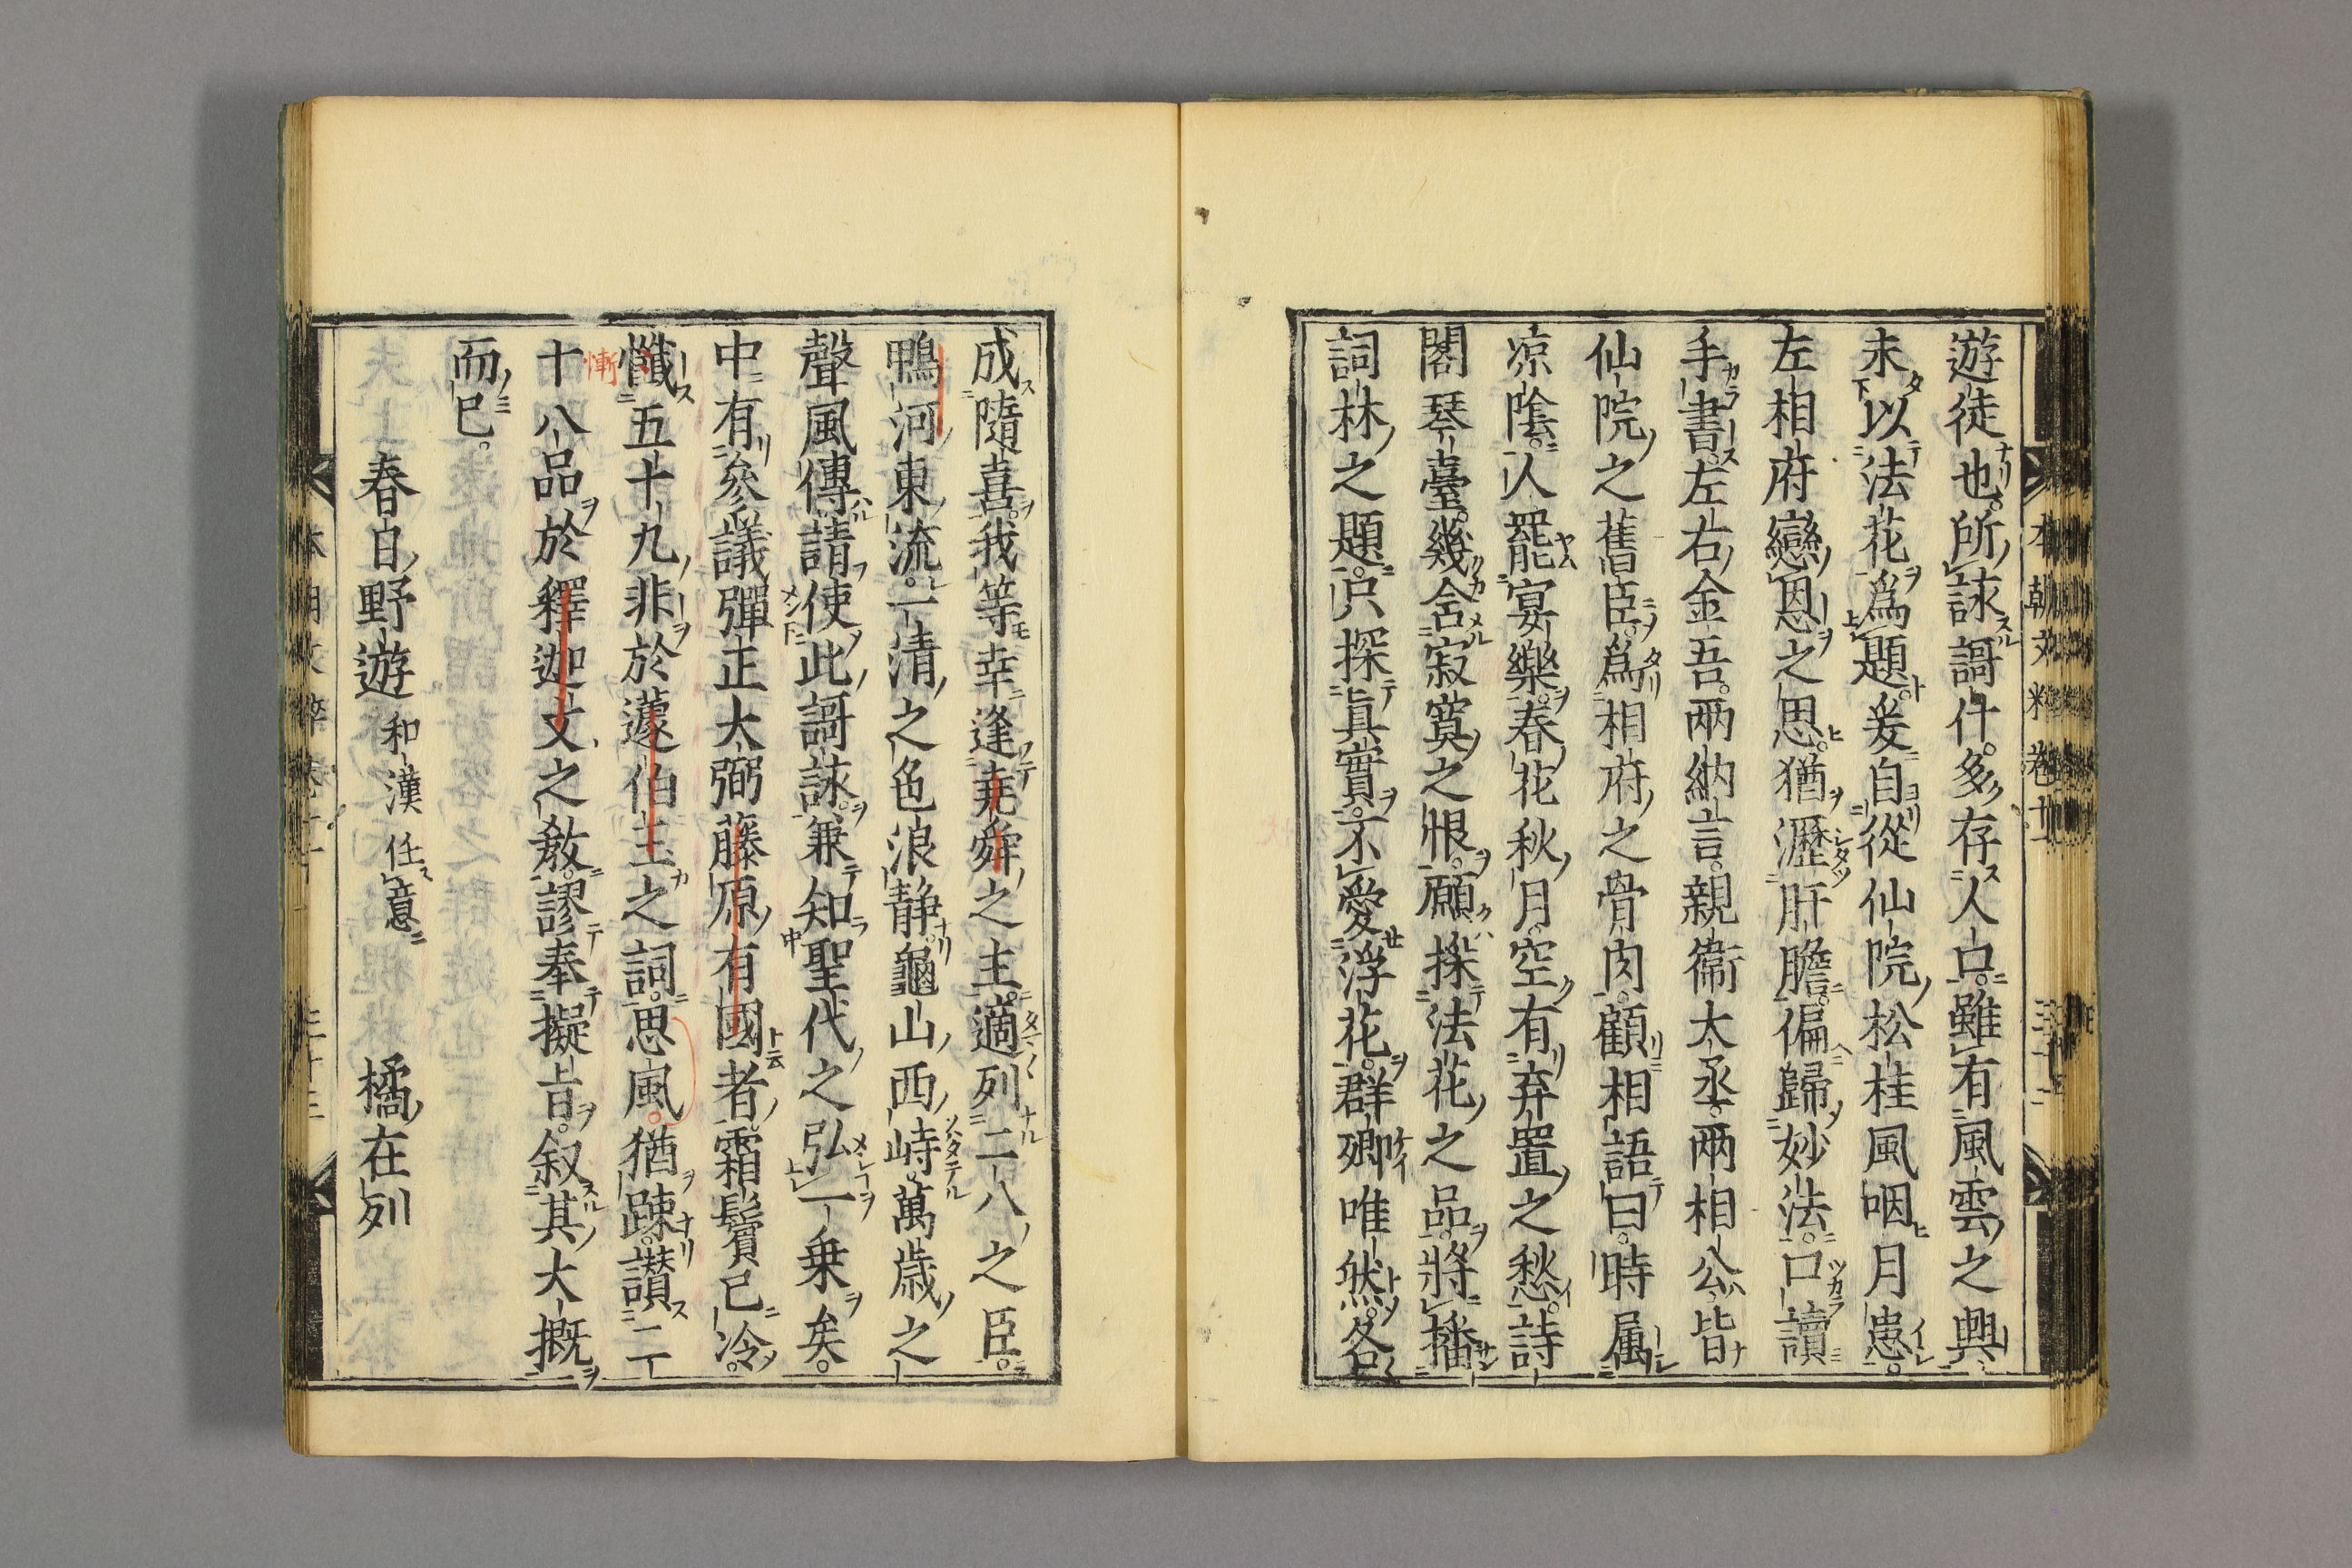 遊徒也。所詠謌什。多存人口。雖有風雲之興
未以法花爲題。爰自從仙院松桂風咽月愁。
左相府戀恩之思。猶瀝肝膽。偏歸妙法。口讀
手書。左右金吾。兩納言。親衞大丞。兩相公。皆
仙院之舊臣。爲相府之骨肉。顧相語曰。時属
凉陰。人罷宴樂。春花秋月。空有弃置之愁。詩
閣琴臺。幾含寂寞之恨。願採法花之品。將播
詞林之題。只探眞實。不愛浮花。群卿唯然。各
成隨喜。我等幸逢堯舜之主。適列二八之臣。
鴨河東流。一清之色浪静。龜山西峙。萬歳之
聲風傳。請使此謌詠。兼知聖代之弘一乗矣。
中有參議彈正大弼藤原有國者。霜鬢已冷。
懺五十九非於蘧伯玉之詞。思風猶踈。讃二
慚
十八品於釋迦文之敎。謬奉擬旨。叙其大概
而已。
春日野遊 和漢任意 橘在列